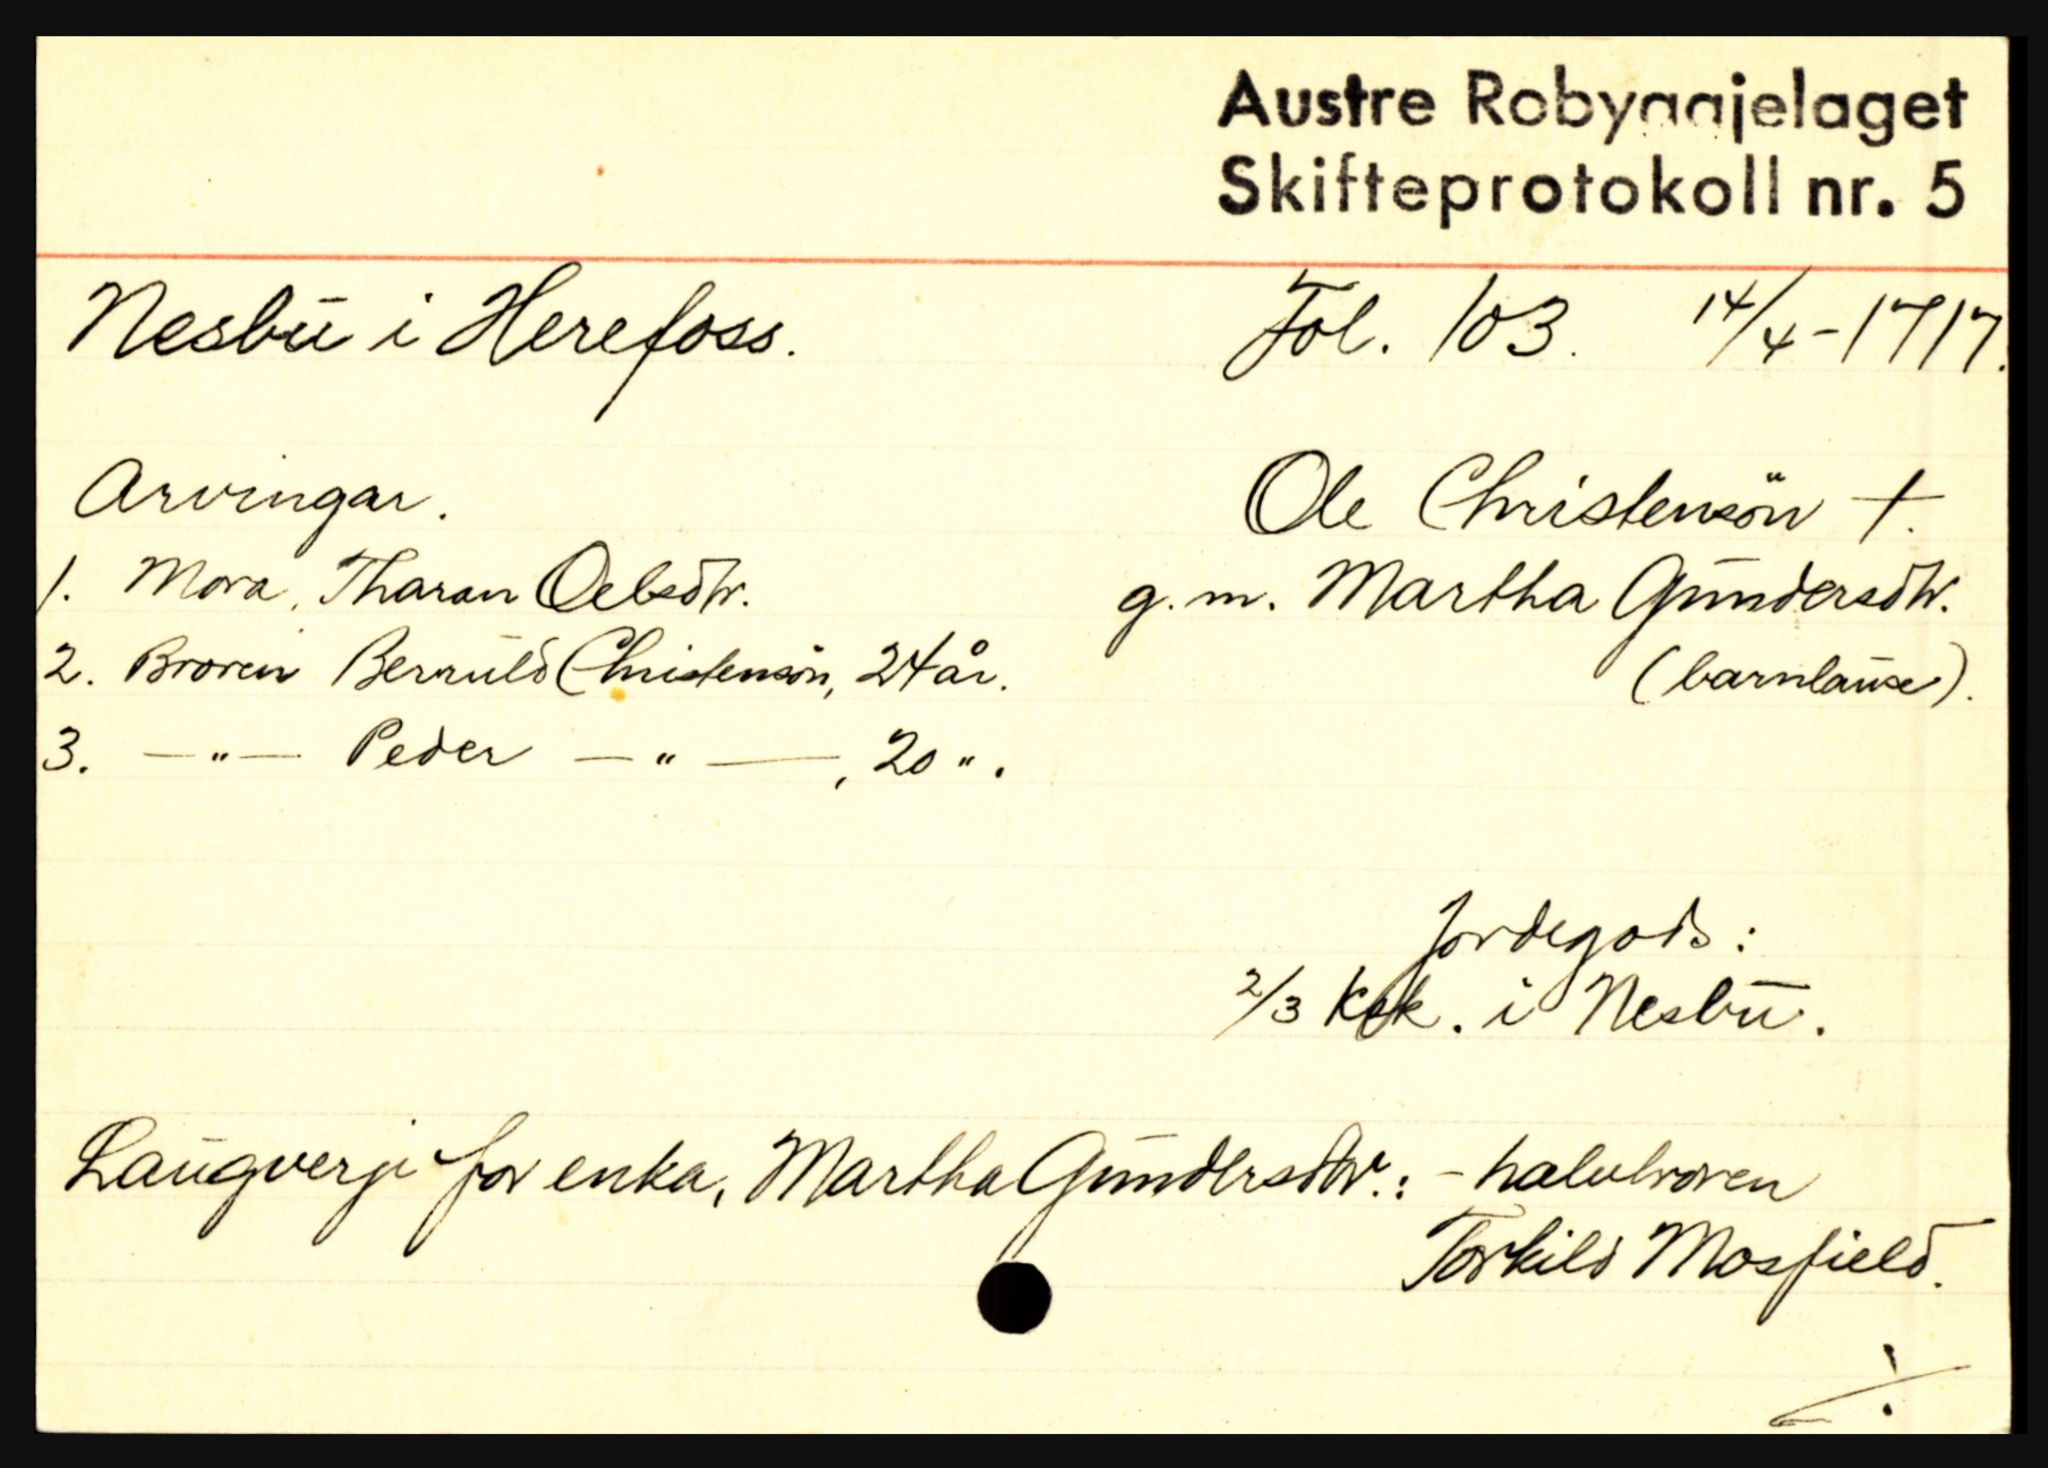 Austre Robyggjelaget
Skifteprotokoll nr. 5
Nesbū i Herefoss. Fol. 103. 14/4-1717.
Arvingar. Ole Christensön †.
1. Mora, Tharan Oelsdtr. g. m. Martha Gūndersdtr.
2. Broren Berrūld Christensön, 24 år. (barnlaūse).
3. —"— Peder —"—, 20 ".
Jordegods:
2/3 Ksk. i Nesbū.
Laūgverje for enka, Martha Gūndersdtr.: - halvbroren
Torkild Mosfield.